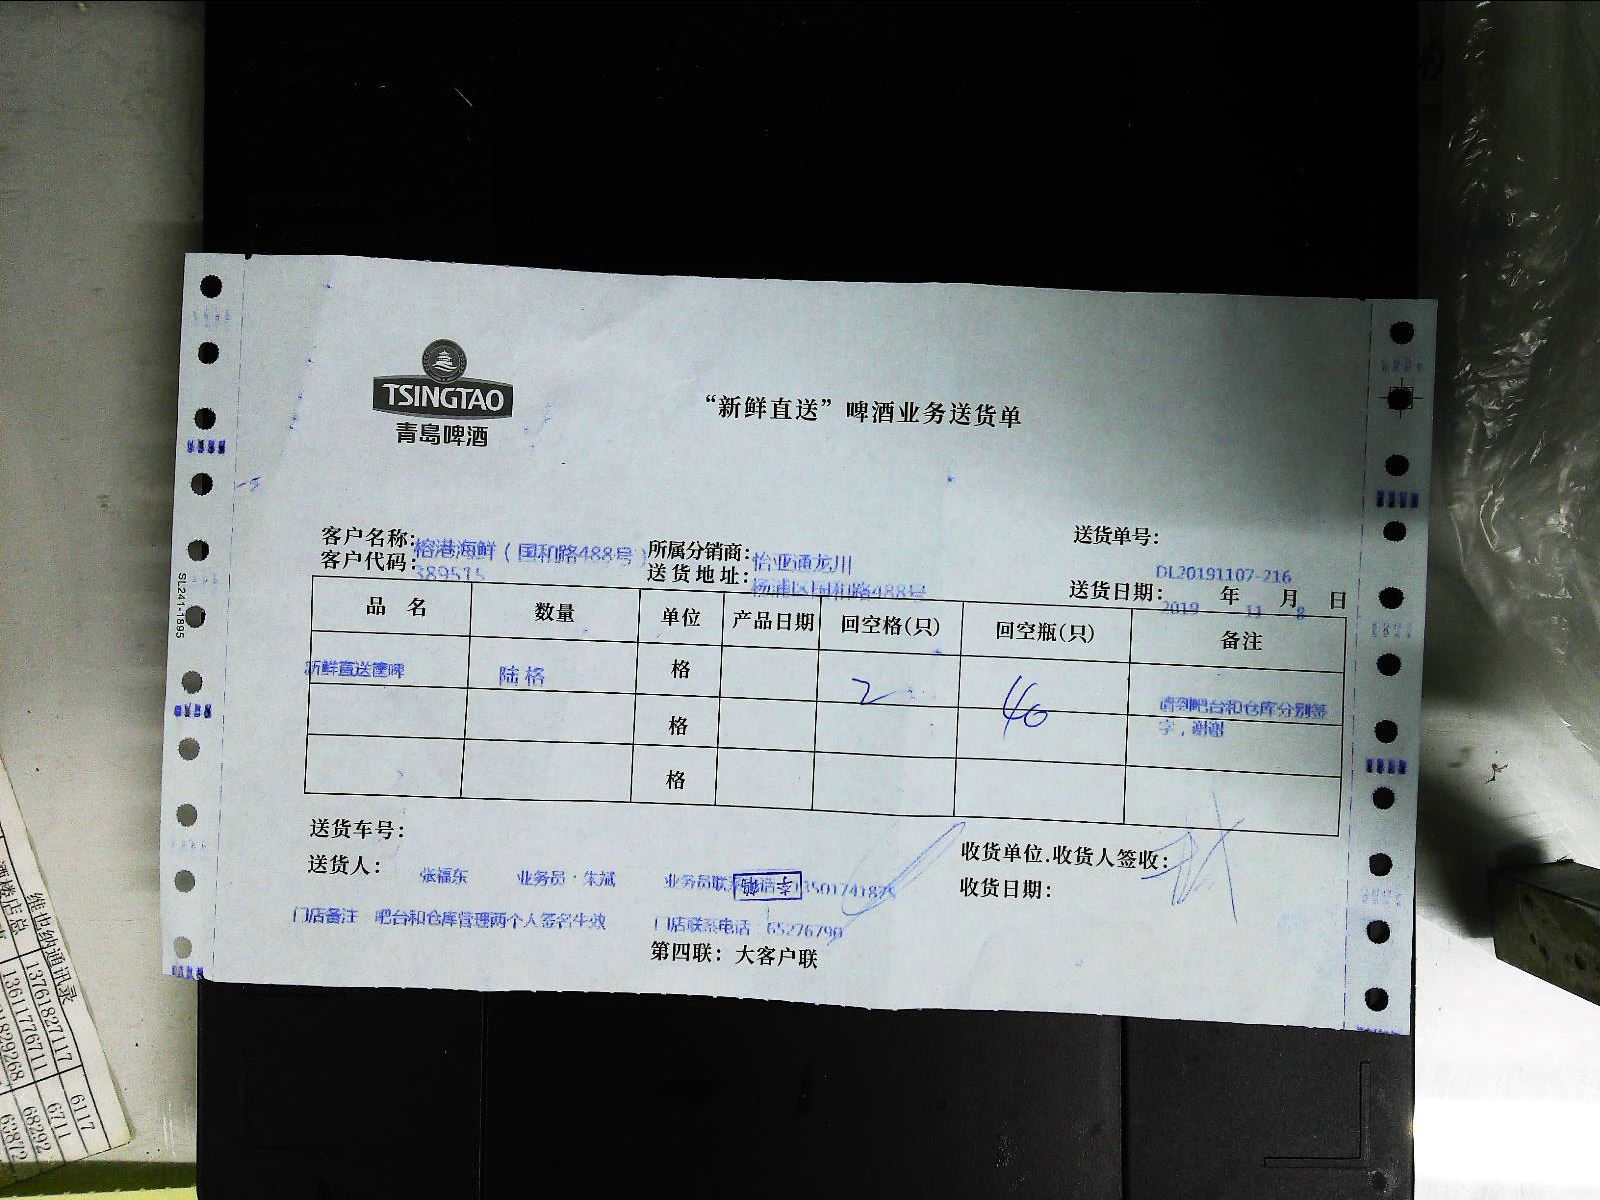 TSINGTAO
青岛啤酒
“新鲜直送”啤酒业务送货单
客户名称: 榕港海鲜（国和路488号） 所属分销商: 怡亚通龙川 送货单号: DL20191107-216
客户代码: 389515 送货地址: 杨浦区国和路488号 送货日期: 2019 年 11 月 8 日
品 名 数量 单位 产品日期 回空格(只) 回空瓶(只) 备注
新鲜直送 陆格 格 2 40 请到吧台和仓库分别签
格 字，谢谢
格
送货车号:
送货人: 张福东 业务员：朱斌 业务员联系电话 收货单位.收货人签收:
收货日期:
门店备注 吧台和仓库管理两个人签名生效 门店联系电话：65276790
第四联: 大客户联
SL241-1895
维也纳通讯录
酒楼店总
13761827117 6117
13611776711 6711
68292
63872